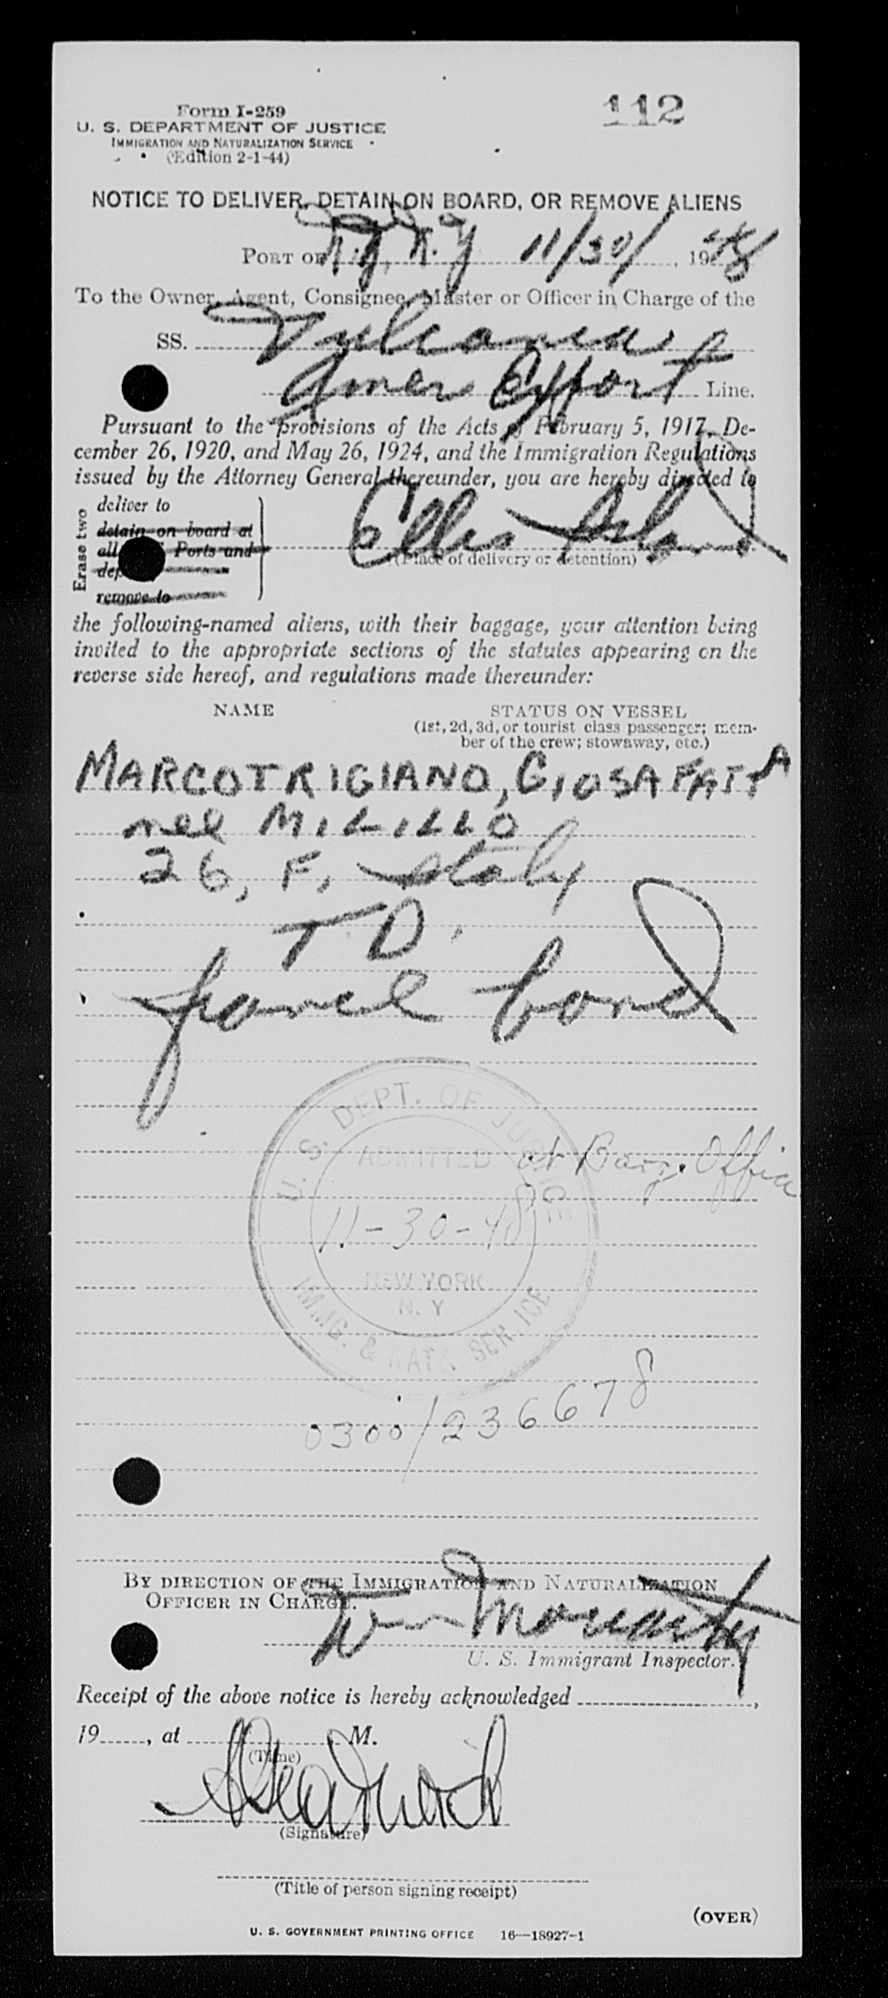 112
Form I-259
U. S. DEPARTMENT OF JUSTICE
IMMIGRATION AND NATURALIZATION SERVICE
(Edition 2-1-44)
NOTICE TO DELIVER, DETAIN ON BOARD, OR REMOVE ALIENS
PORT OF N.Y., N.Y 11/30/, 1948
To the Owner, Agent, Consignee, Master or Officer in Charge of the
SS. Vulcania,
Amer Export Line.
Pursuant to the provisions of the Acts of February 5, 1917, De-
cember 26, 1920, and May 26, 1924, and the Immigration Regulations
issued by the Attorney General thereunder, you are hereby directed to
Erase two
deliver to
detain on board at
all Ports and
remove to
Ellis Island
(Place of delivery or detention)
the following-named aliens, with their baggage, your attention being
invited to the appropriate sections of the statutes appearing on the
reverse side hereof, and regulations made thereunder:
NAME STATUS ON VESSEL
(1st, 2d, 3d, or tourist class passenger; mem-
ber of the crew; stowaway, etc.)
MARCOTRIGIANO, GIOSAFATTA
nee MILILLO
26, F, Italy
T.D.
bond
U. S. DEPT. OF JUSTICE
ADMITTED at Barge Office
11-30-48
NEW YORK
N. Y
IMMG. & NATZ. SERVICE
0300/236678
BY DIRECTION OF THE IMMIGRATION AND NATURALIZATION
OFFICER IN CHARGE.
Wm Moriarty
U. S. Immigrant Inspector.
Receipt of the above notice is hereby acknowledged ,
19 , at M.
(Time)
(Signature)
(Title of person signing receipt)
(OVER)
U. S. GOVERNMENT PRINTING OFFICE 16—18927-1